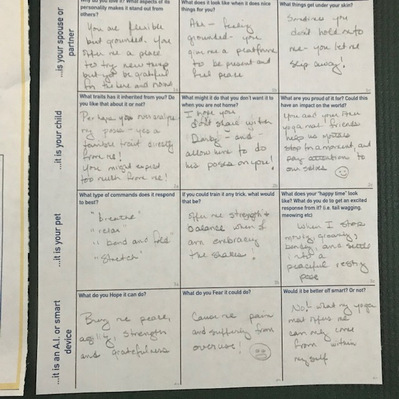 ...is your spouse or partner
personality makes it stand out from
others?
You are flexible
but grounded. You
offer me a place
to try new things
but you're grateful
for the here and now
What does it look like when it does nice
things for you?
Ahh - feeling
grounded - you
give me a platform
to be present and
feel peace
What things get under your skin?
Sometimes you
don't hold onto
me - you let me
slip away!
...it is your child
What traits has it inherited from you? Do
you like that about it or not?
my pose - yes a
familiar trait directly
from me!
You might expect
too much from me!
What might it do that you don't want it to
when you are not home?
I hope you
don't share with
and
allow him to do
his poses on you!
What are you proud of it for? Could this
have an impact on the world?
You and your other
yoga mat friends
help us
stop for a moment, and
pay attention to
our selves
...it is your pet
What type of commands does it respond
to best?
"breathe"
"relax"
"bend and fold"
"Stretch"
If you could train it any trick, what would
that be?
Offer me strength &
balance when I
am embracing
the shakes!
What does your "happy time" look
like? What do you do to get an excited
response from it? (i.e. tail wagging,
meowing etc)
When I stop
moving,
bending, and
into a
peaceful resting
pose
...it is an A.I. or smart
device
What do you Hope it can do?
Bring me peace,
agility, strength
and gratefulness
What do you Fear it could do?
Cause me pain
and suffering from
overuse!
Would it be better off smart? Or not?
No! what my yoga
mat offers me
can only come
from within
myself